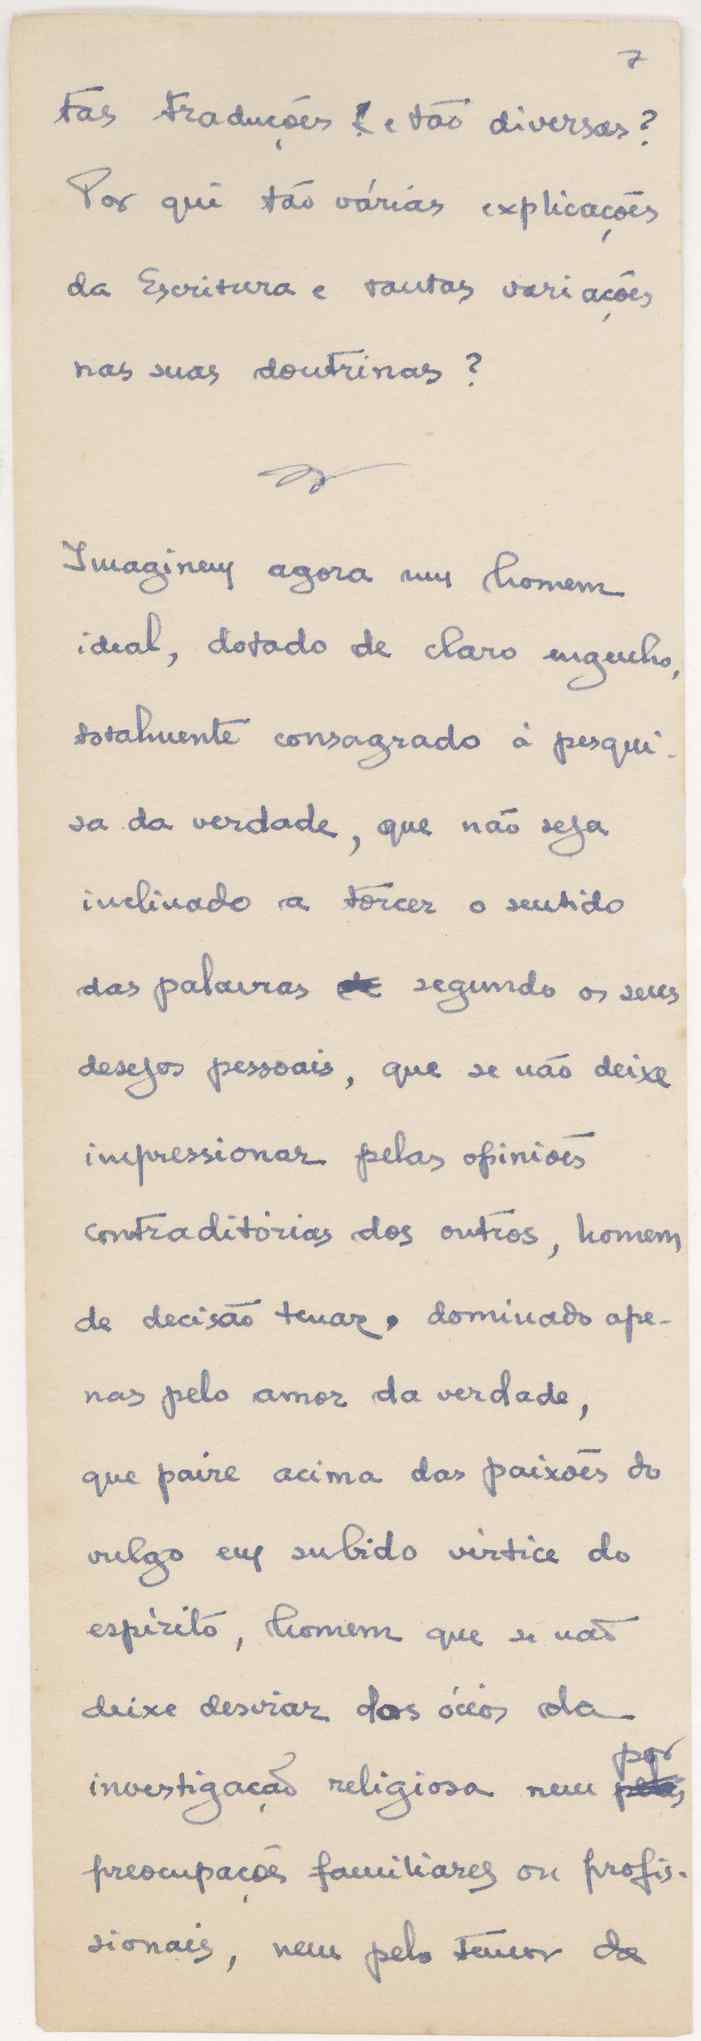 7
tas traduções e tão diversas?
Por quê tão várias explicações
da Escritura e tantas variações
nas suas doutrinas?
Imaginem agora um homem
ideal, dotado de claro engenho,
totalmente consagrado à pesqui-
sa da verdade, que não seja
inclinado a torcer o sentido
das palavras segundo os seus
desejos pessoais, que se não deixe
impressionar pelas opiniões
contraditórias dos outros, homem
de decisão tenaz, dominado ape-
nas pelo amor da verdade,
que paire acima das paixões do
vulgo em subido vértice do
espírito, homem que se não
deixe desviar dos ócios da
investigação religiosa nem por
preocupações familiares ou profis-
sionais, nem pelo temor de